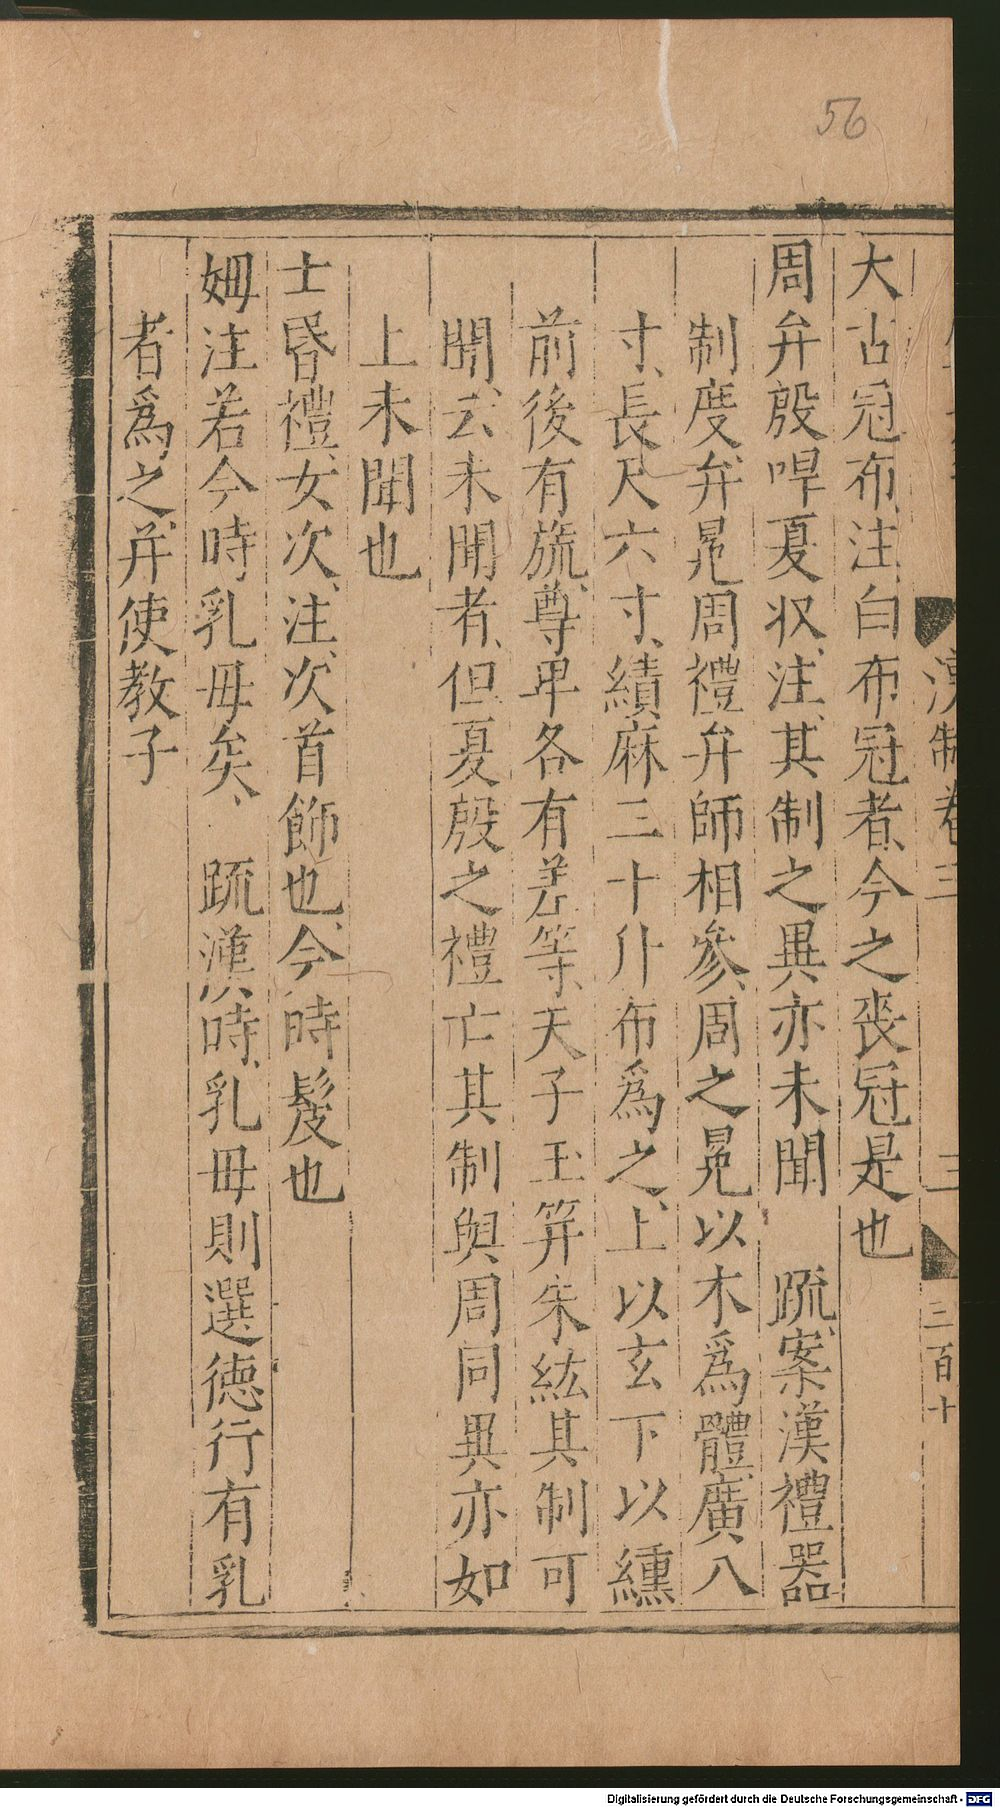 56
大古冠布注白布冠者今之喪冠是也
周弁殷哻夏収注其制之異亦未聞 疏案漢禮器
制度弁冕周禮弁師相參周之冕以木爲體廣八
寸長尺六寸績麻三十升布爲之上以玄下以纁
前後有旒尊卑各有差等天子玉筓朱紘其制可
聞云未聞者但夏殷之禮亡其制與周同異亦如
上未聞也
士昏禮女次注次首飾也今時髲也
姆注若今時乳母矣 疏漢時乳母則選德行有乳
者爲之并使教子
漢制卷三
三
三百十
Digitalisierung gefördert durch die Deutsche Forschungsgemeinschaft - DFG